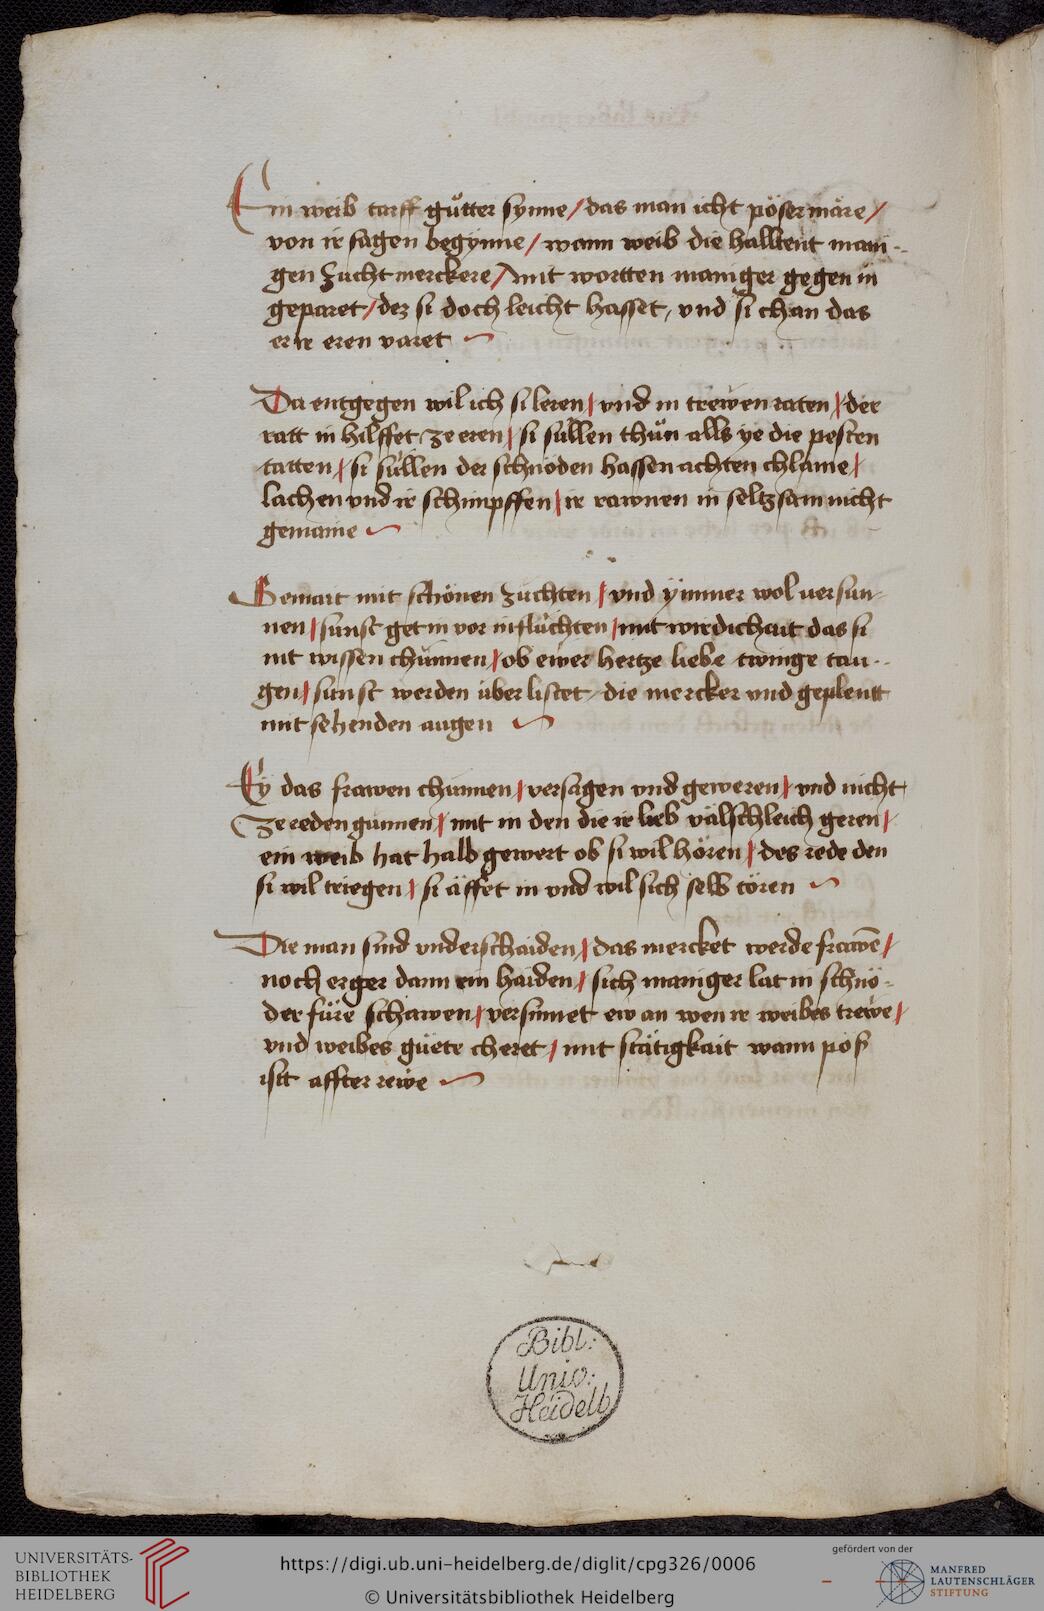 Ein weib tarff gůtter synne / das man icht pöser märe /
von ir sagen begynne / wann weib die halltent mani-
gen zucht merckere / mit wortten maniger gegen in
geparet / dez si doch leicht hasset, vnd si chan das
er ir eren varet
Da entgegen wil ich si leren / vnd in trewen raten / der
ratt in hilffet ze eren / si süllen thůn alls ye die pesten
tatten / si süllen der schnöden hassen achten chlaine /
lachen vnd ir schimpffen / ir rawnen in seltzsam nicht
gemaine
Gemait mit schönen züchten / vnd ymmer wol versun-
nen / sunst get in vor in flüchten / mit wirdichait das si
nit wissen chünnen / ob ewer hertze liebe twinge tau-
gen / sunst werden über listet / die mercker vnd geplentt
mit sehenden augen
Ey das frawen chünnen / versagen vnd geweren / vnd nicht
ze reden gunnen / mit in den die ir lieb välschleich geren /
ein weib hat halb gewert ob si wil hören / des rede den
si wil triegen / si äffet in vnd wil sich selb tören
Die man sind vnderschaiden / das mercket werde frawē /
noch erger dann ein haiden / sich maniger lat in schnö-
der füre schawen / versinnet ew an wen ir weibes trewe /
vnd weibes güete cheret / mit stätigkait wann pöß
ist affter rewe
Bibl:
Univ:
Heidelb
UNIVERSITÄTS-
BIBLIOTHEK
HEIDELBERG
https://digi.ub.uni-heidelberg.de/diglit/cpg326/0006
© Universitätsbibliothek Heidelberg
gefördert von der
MANFRED
LAUTENSCHLÄGER
STIFTUNG